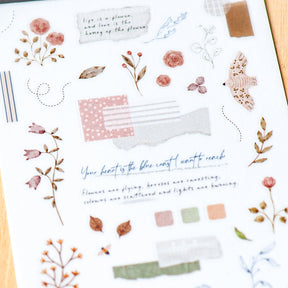 life is a flower
and love is the
honey of the flower
Your heart is the blue coast I want to reach
Flowers are flying, horses are sweating,
colours are scattered and lights are burning